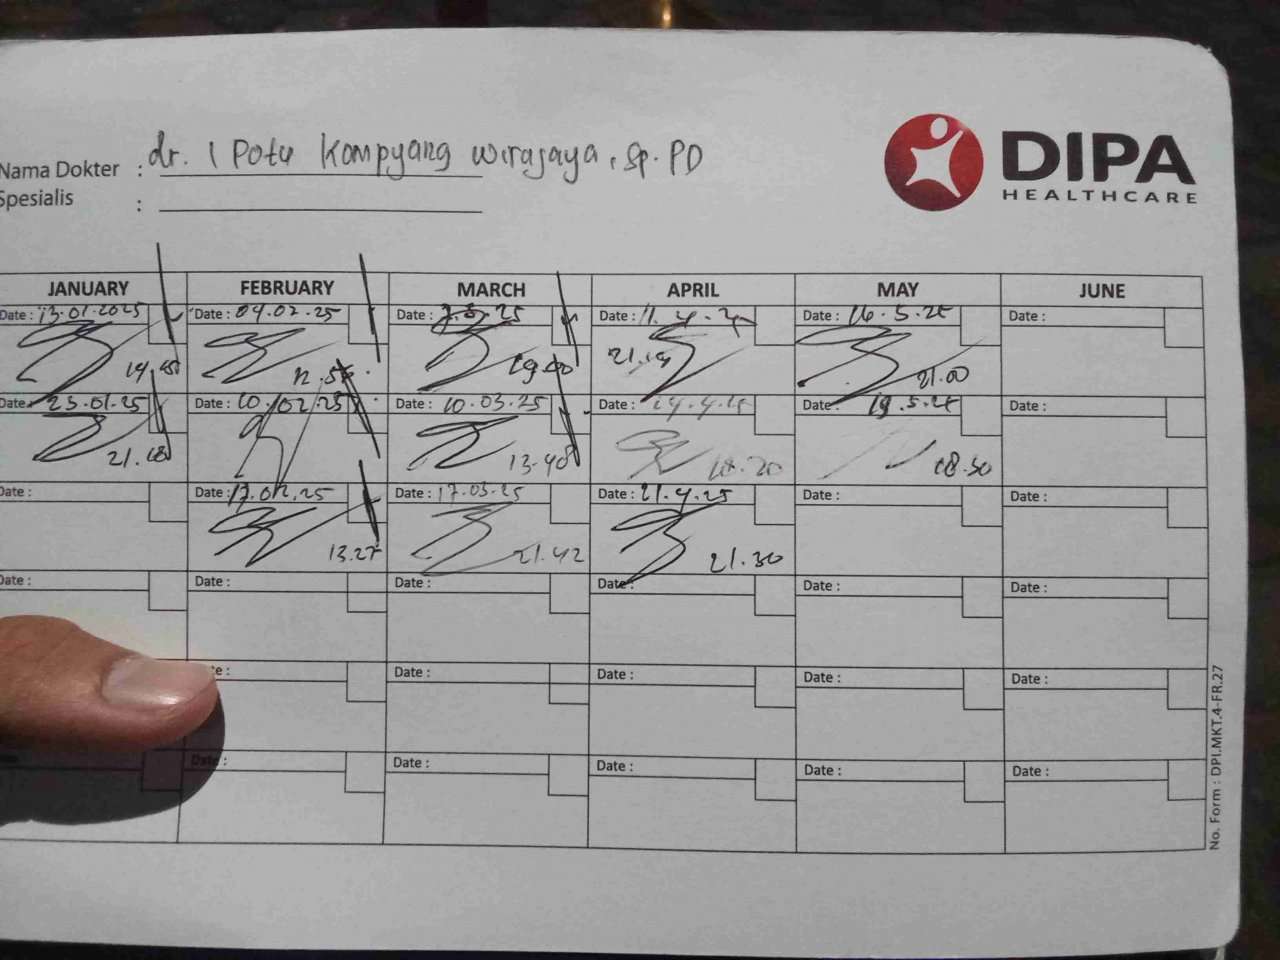 DIPA
HEALTHCARE
Nama Dokter : dr. I Putu Kompyang Wirajaya, Sp. PD
Spesialis :
JANUARY FEBRUARY MARCH APRIL MAY JUNE
Date : 13.01.2025 Date : 04.02.25 Date : 25 Date : 11.4.25 Date : 16.5.25 Date :
19.00 21.19 21.00
Date : 23.01.25 Date : 10.02.25 Date : 10.03.25 Date : 14.4.25 Date : 19.5.25 Date :
13.40 18.20 18.30
Date : Date : 17.02.25 Date : 17.03.25 Date : 21.4.25 Date : Date :
13.27 21.42 21.30
Date : Date : Date : Date : Date : Date :
Date : Date : Date : Date : Date :
Date : Date : Date : Date : Date :
No. Form : DPI.MKT.4-FR.27